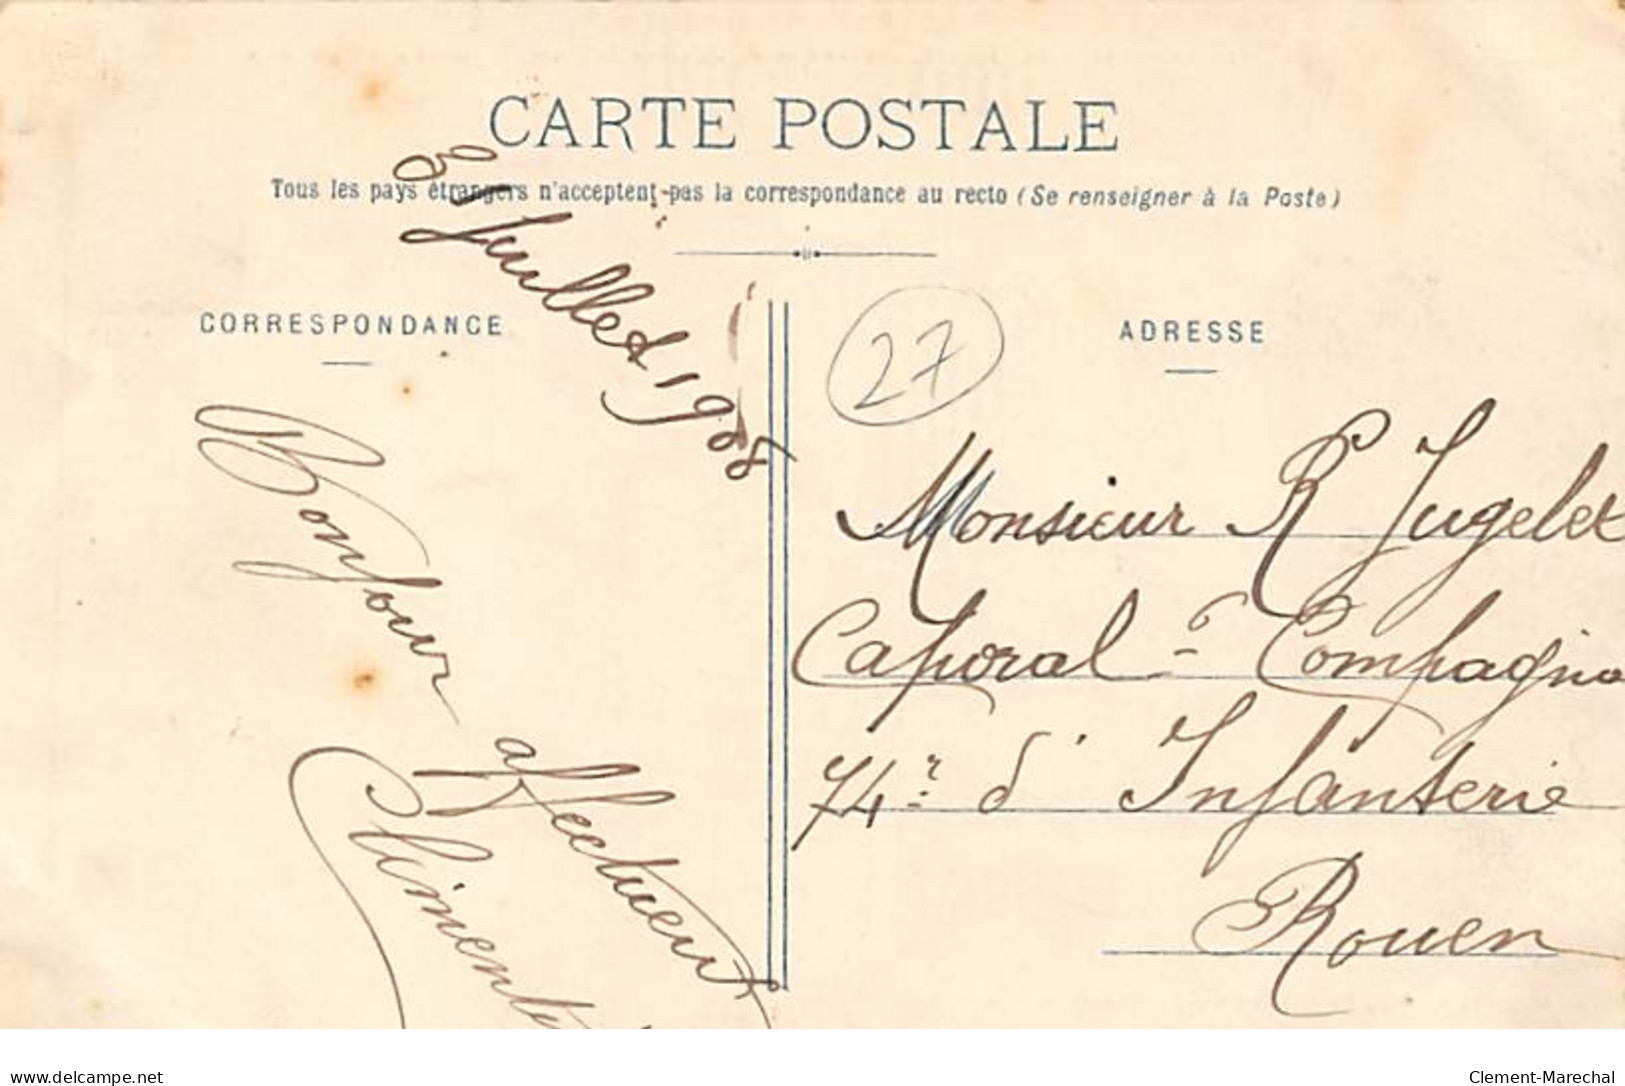 CARTE POSTALE
Tous les pays étrangers n'acceptent pas la correspondance au recto (Se renseigner à la Poste)
CORRESPONDANCE
3 Juillet 1908
Bonjour affectueux
Clément
27
ADRESSE
Monsieur R Jugelet
Caporal - 6e Compagnie
74e d'Infanterie
Rouen
www.delcampe.net
Clement-Marechal